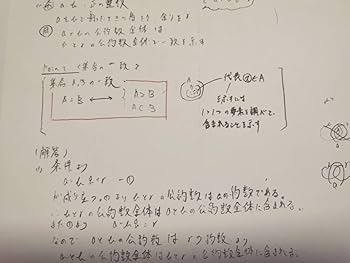 a, b : 正の整数
aをbで割ったときの商をq, 余りをr
aとbの公約数全体は
bとrの公約数全体と一致を示す
Point 《集合の一致》
集合A,Bの一致
A=B ⟷ { A⊃B
A⊂B
代表 ∈A
1つ1つの要素を調べて、
含まれることを示す
(解答)
(1) 条件より
a-bq=r -①
が成り立つ。①よりbとrの公約数はaの約数である。
∴bとrの公約数全体はaとbの公約数全体に含まれる。
また①より a-bq=r
なので aとbの公約数は rの約数 より
aとbの公約数全体はbとrの公約数全体に含まれる。